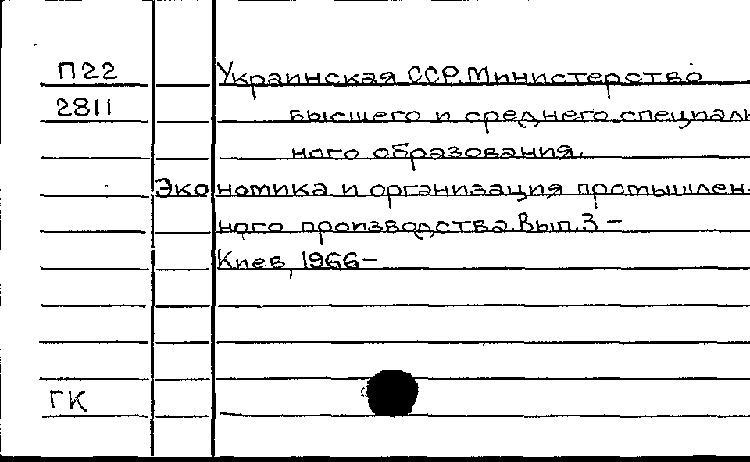 П22 Украинская ССР. Министерство
2811 высшего и среднего специаль
ного образования.
Экономика и организация промышлен-
ного производства. Вып. 3 –
Киев, 1966–
ГК